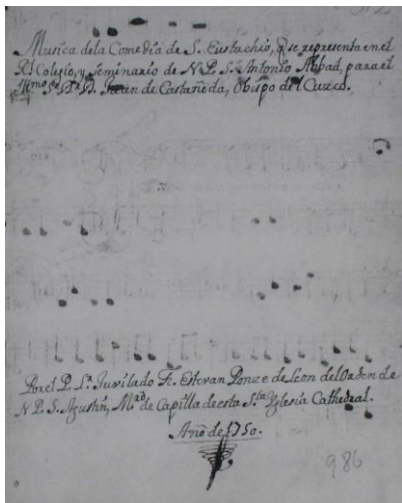 Musica dela Comedia de S. Eustachio, q̃ se representa en el
Rl Colegio, y Seminario de N.P. S. Antonio Abbad, para el
Illmo Sr Dr D. Juan de Castañeda, Obispo del Cuzco.
Por el P. Lr. Juvilado Fr. Estevan Ponze de Leon del Orden de
N P. S. Agustin, Mro de Capilla de esta Sta Yglesia Cathedral.
Año de 1750.
986